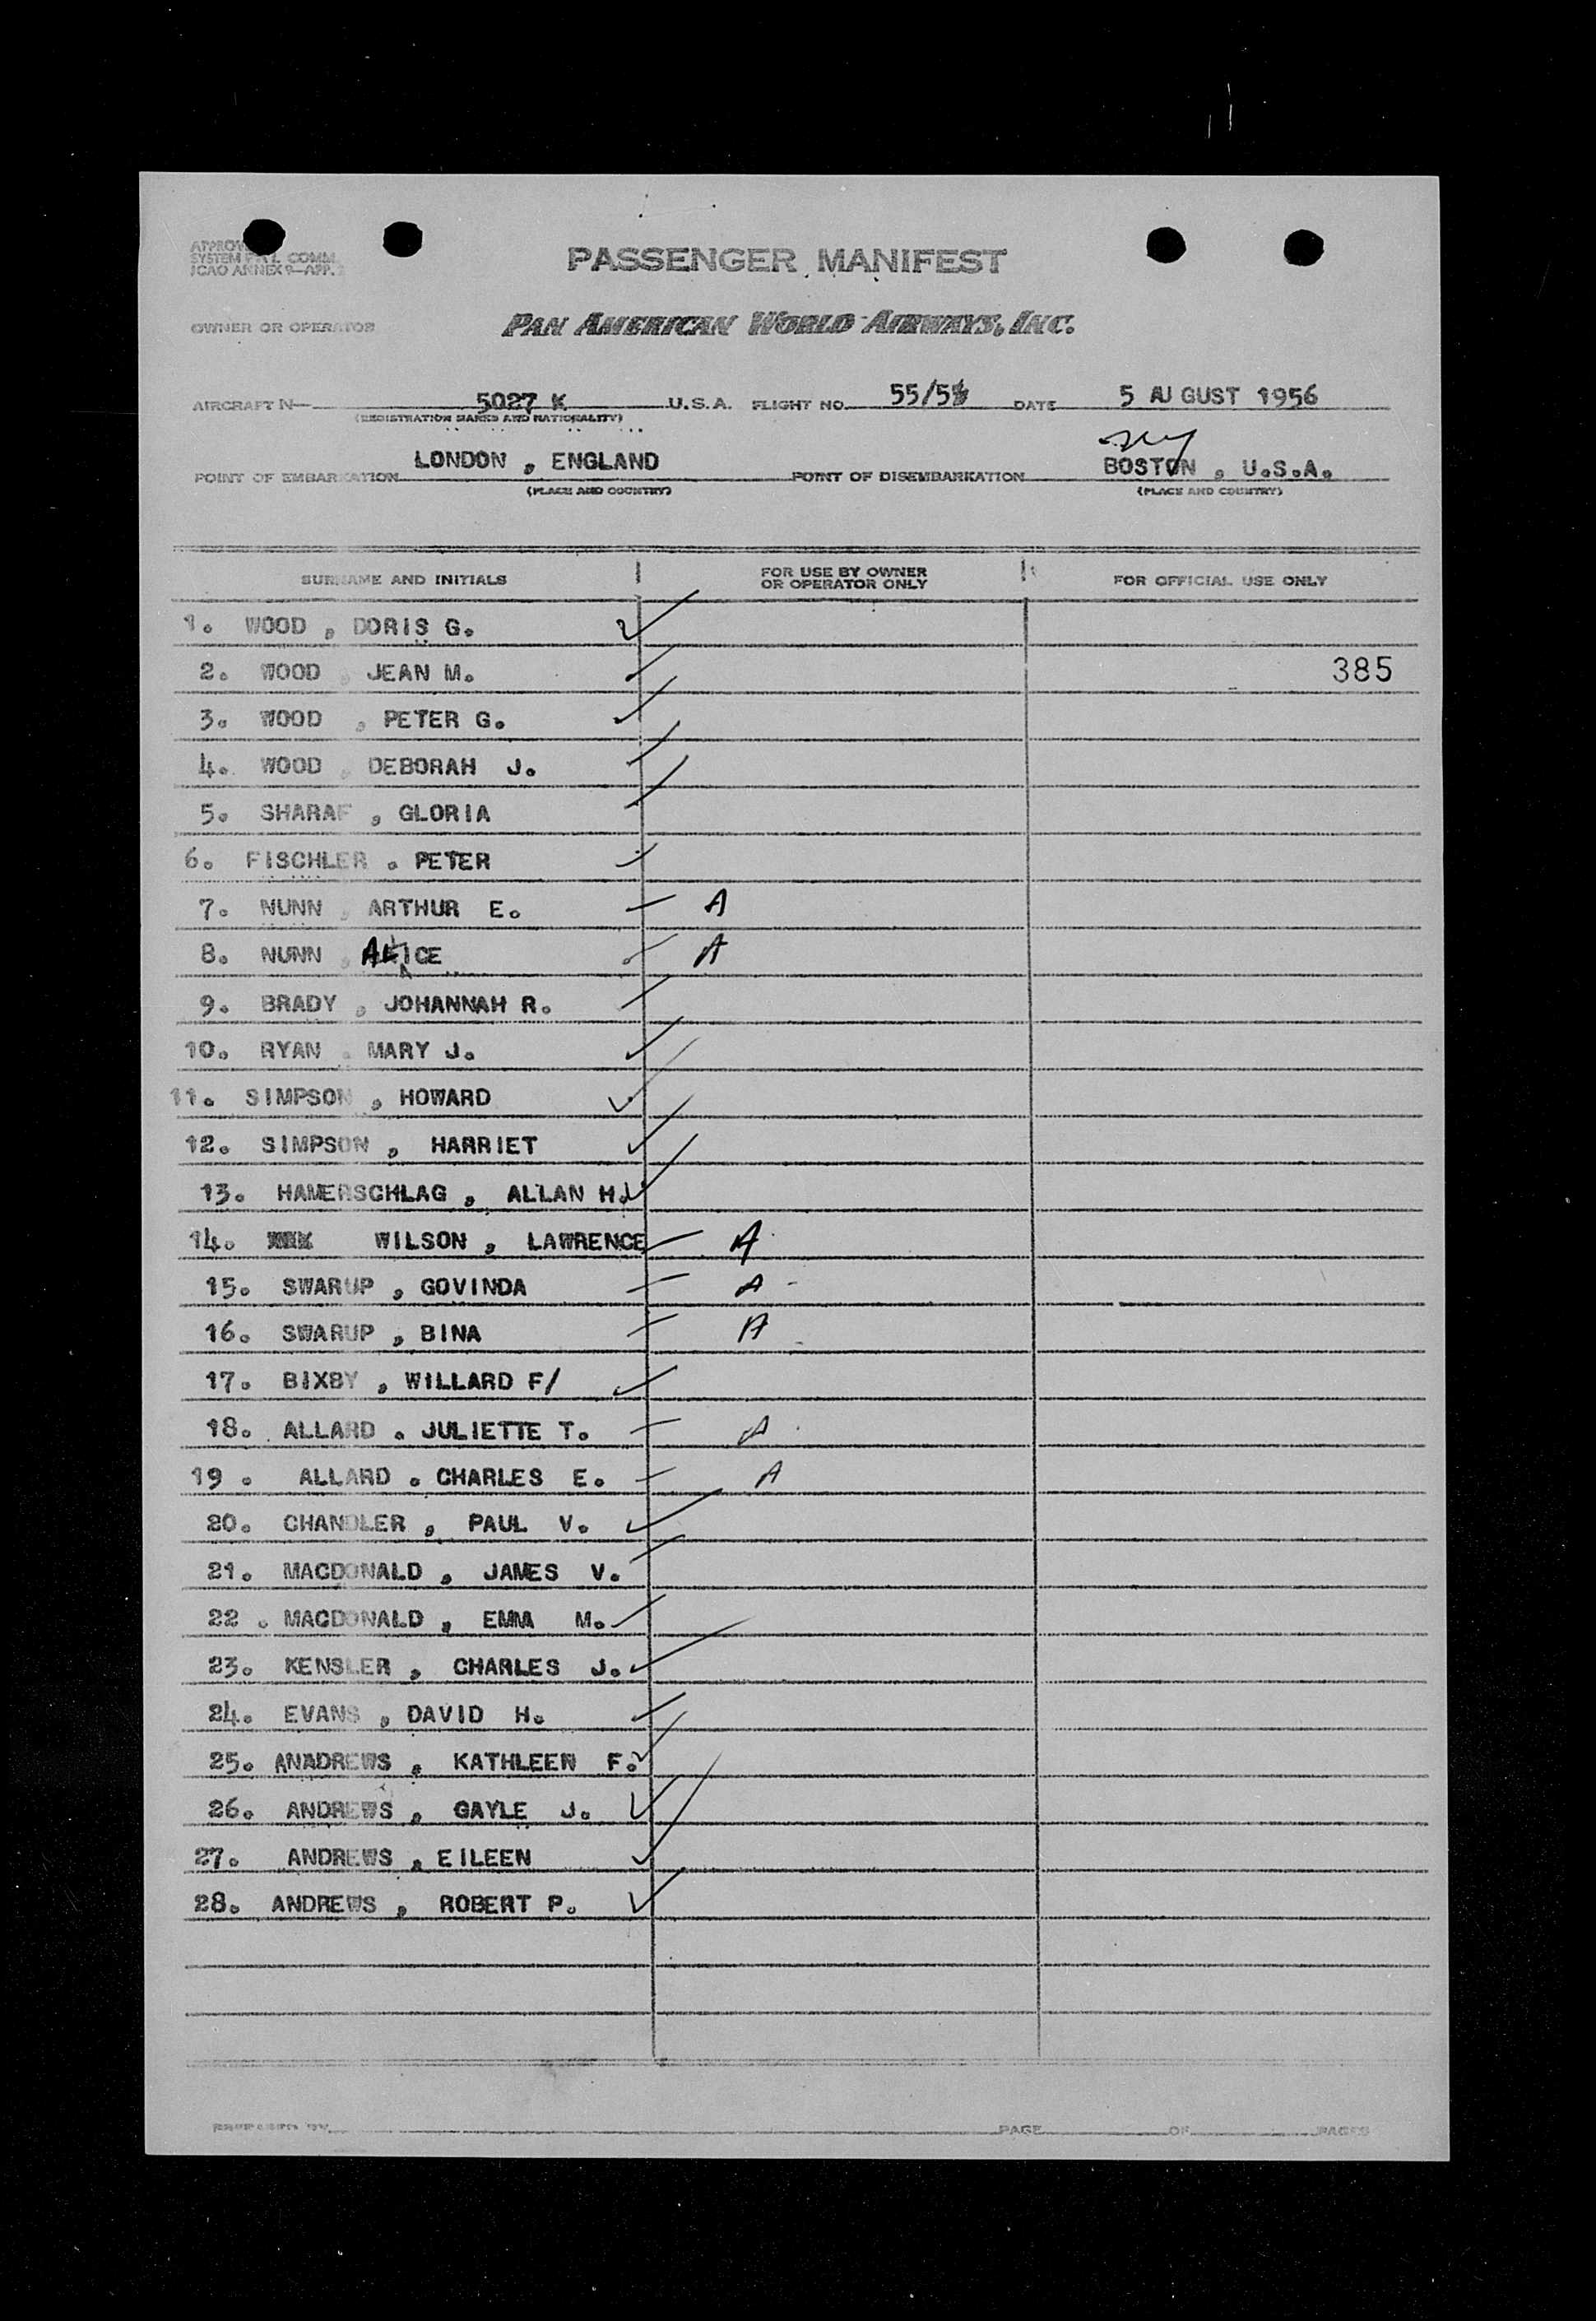 SYSTEM COMM.
ICAO ANNEX 9—APP. 2
PASSENGER MANIFEST
OWNER OR OPERATOR
PAN AMERICAN WORLD AIRWAYS, INC.
AIRCRAFT N— 5027 K U.S.A. FLIGHT NO. 55/5 DATE 5 AUGUST 1956
(REGISTRATION MARKS AND NATIONALITY)
POINT OF EMBARKATION LONDON , ENGLAND POINT OF DISEMBARKATION BOSTON , U.S.A.
(PLACE AND COUNTRY) (PLACE AND COUNTRY)
SURNAME AND INITIALS FOR USE BY OWNER OR OPERATOR ONLY FOR OFFICIAL USE ONLY
1. WOOD , DORIS G.
2. WOOD , JEAN M. 385
3. WOOD , PETER G.
4. WOOD , DEBORAH J.
5. SHARAF , GLORIA
6. FISCHLER . PETER
7. NUNN , ARTHUR E. A
8. NUNN , ALICE A
9. BRADY , JOHANNAH R.
10. RYAN . MARY J.
11. SIMPSON , HOWARD
12. SIMPSON , HARRIET
13. HAMERSCHLAG , ALLAN H.
14. WILSON , LAWRENCE A
15. SWARUP , GOVINDA A
16. SWARUP , BINA A
17. BIXBY , WILLARD F/
18. ALLARD . JULIETTE T. A
19 . ALLARD . CHARLES E. A
20. CHANDLER , PAUL V.
21. MACDONALD , JAMES V.
22 . MACDONALD , EMMA M.
23. KENSLER , CHARLES J.
24. EVANS , DAVID H.
25. ANADREWS , KATHLEEN F.
26. ANDREWS , GAYLE J.
27. ANDREWS , EILEEN
28. ANDREWS , ROBERT P.
PREPARED BY PAGE OF PAGES